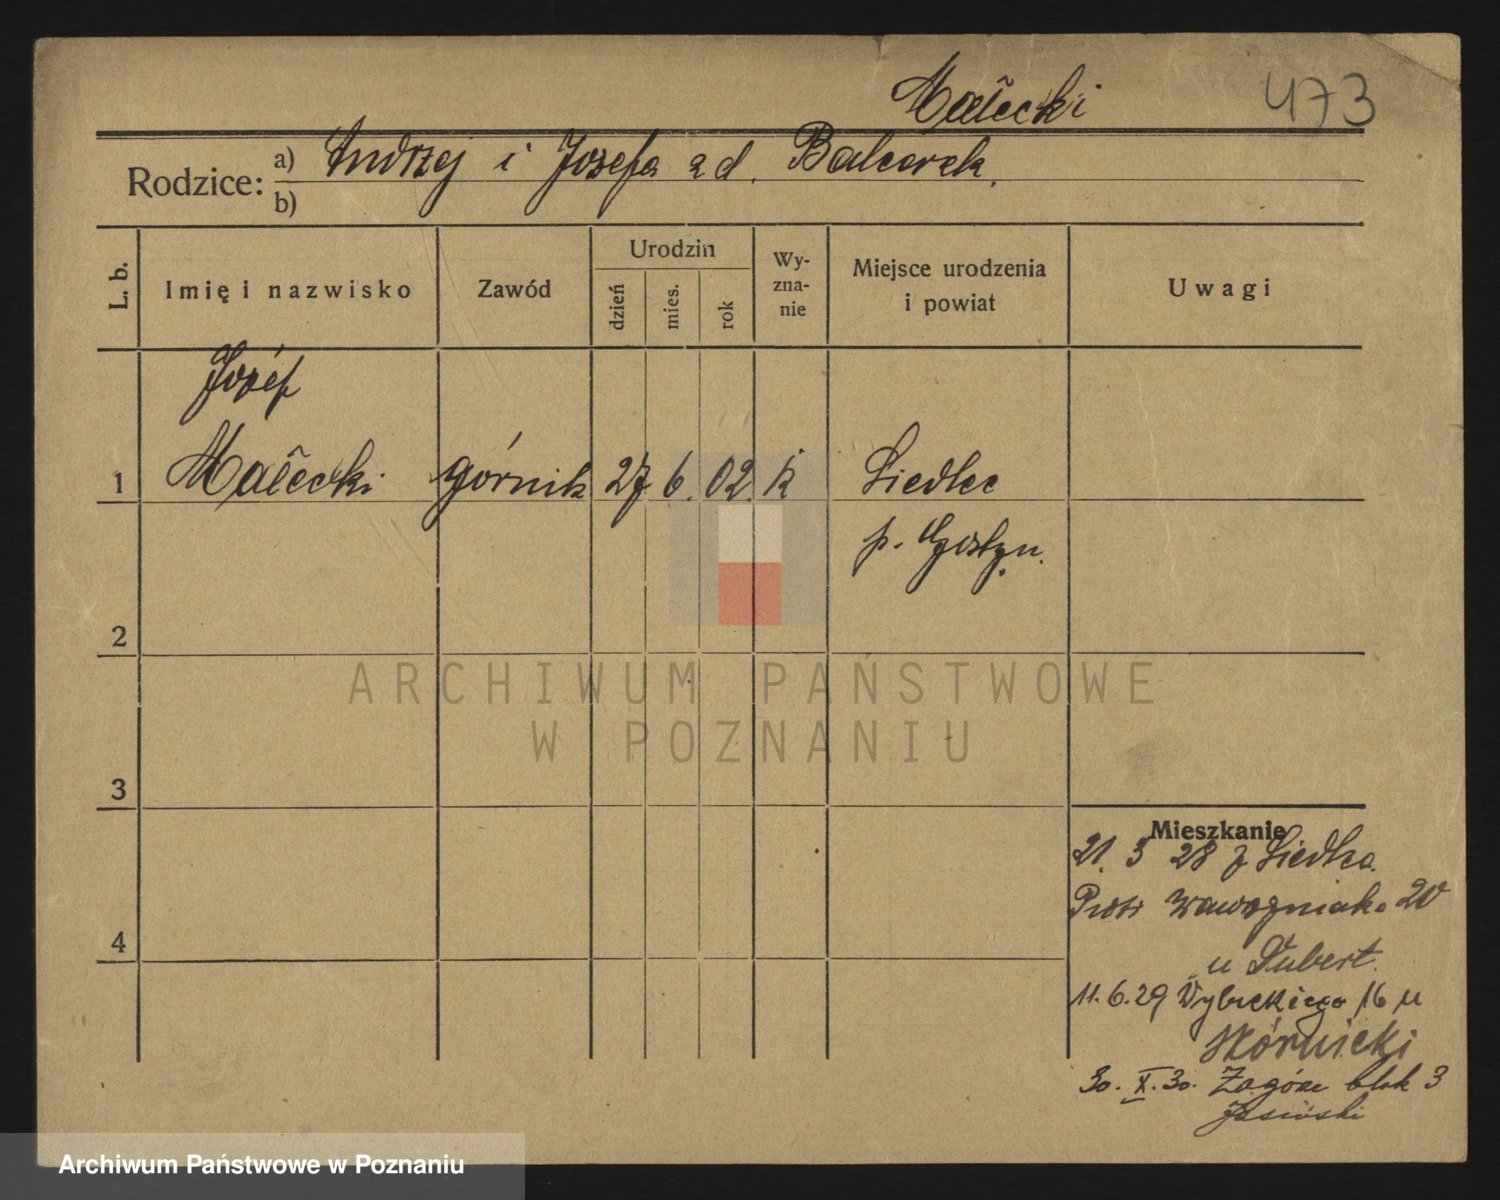 Małecki 473
Rodzice: a) Andrzej i Józefa z d. Balcerek.
b)
L. b.
Imię i nazwisko
Zawód
Urodzin
dzień
mies.
rok
Wy-
zna-
nie
Miejsce urodzenia
i powiat
Uwagi
Józef
1 Małecki górnik 27 6. 02. k Siedlec
p. Gostyń.
2
ARCHIWUM PAŃSTWOWE
W POZNANIU
3
Mieszkanie
21. 3 28 z Siedlca.
Piotr Wawrzyniaka 20
u Dubert.
11.6.29 Wybickiego 16 u
Skórnicki
4
30. X. 30. Zagórze blok 3
Archiwum Państwowe w Poznaniu